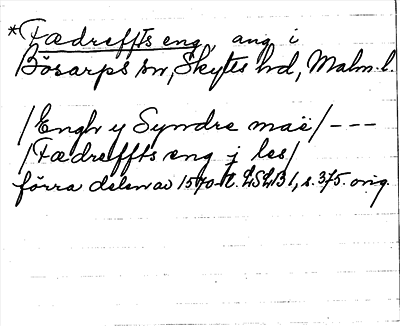 *Fædreffts eng, ang i
Bösarps sn, Skytts hd, Malm. l.
/Engh y Syndre maë/ ---
/Fædreffts eng j les/
förra delen av 1570-t. LSLB 1, s. 375. orig.